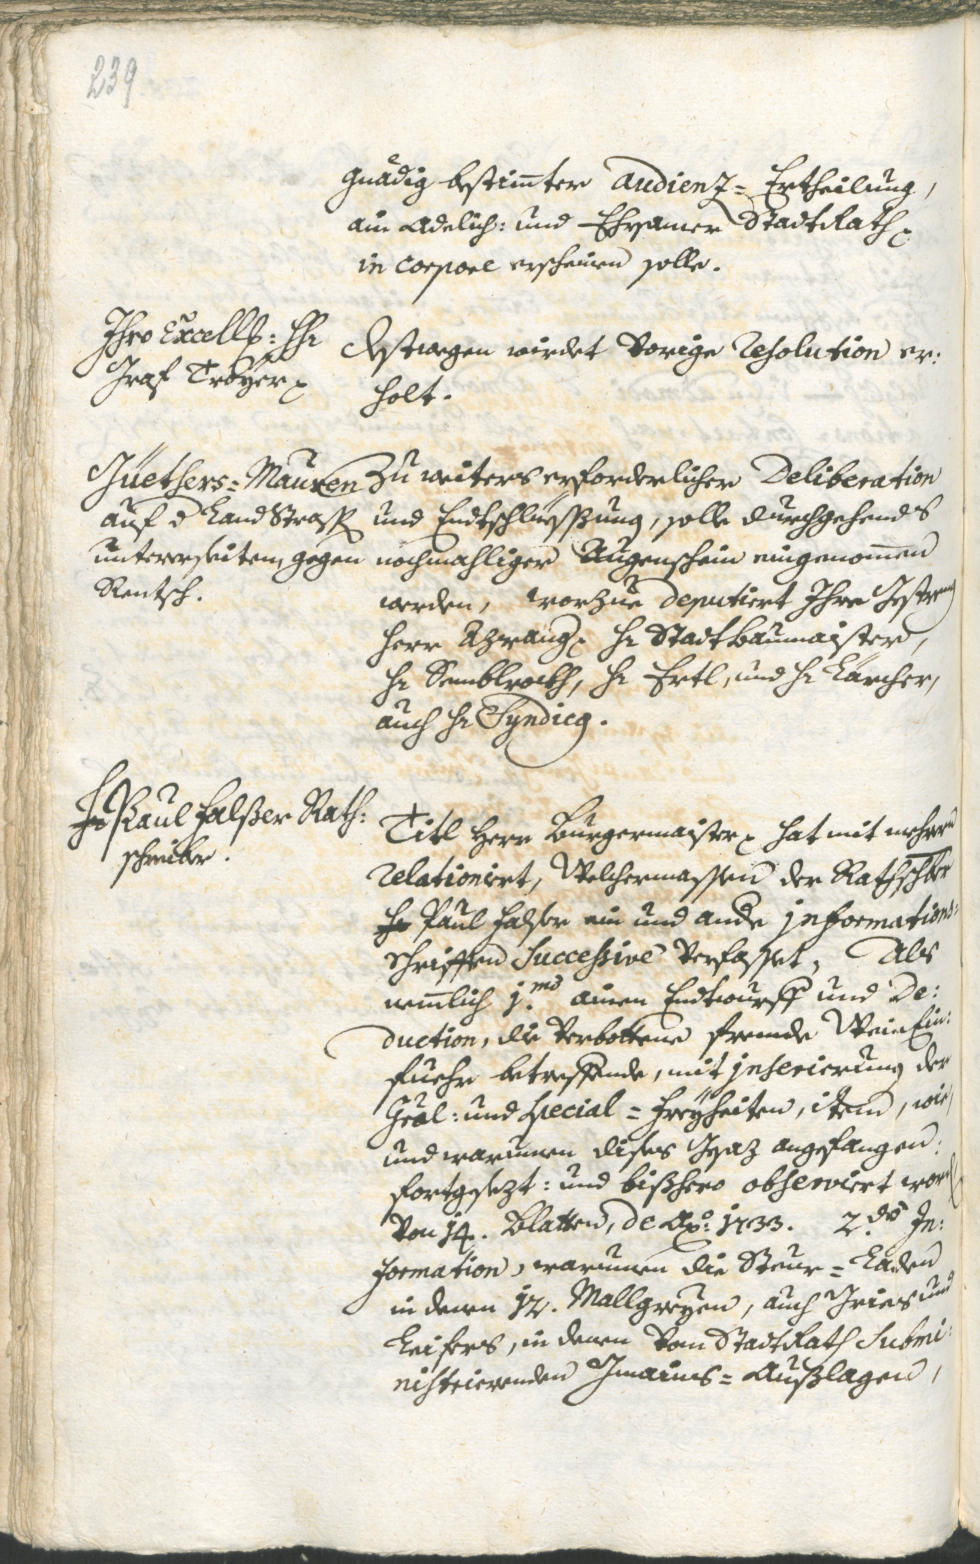 239
gnädig bestimter Audienz= Ertheilung,
ain Adelich: und Ehrsamer StadtRath
in corpore erscheinen solle.
Ihro Excellß: Hr
Graf Troyer
Destwegen wirdet vorige Resolution er:
holt.
Güethers= Mauren
auf d LandStrass
untererseiten gegen
Rentsch.
Zu weiters erforderlicher Deliberation
und Endtschlüessung, solle durchgehends
nochmahliger Augenschein eingenommen
werden, worzue deputiert Ihro Gestreng
Herr Azwang, Hr Stadtbaumaister,
Hr Semblrockh, Hr Ertl, und Hr Kärcher,
auch Hr Syndicg.
Hr Paul Halßer Rath:
schreiber.
Titl Herr Burgermaister hat mit mehrern
relationiert, Welchermassen der Rathschbr
Hr Paul Halser ein und ande informations:
Schrifften Successive verfasset, Als
nemmlich 1.mo ainen Endtwurff und De:
duction, die verbottene frembde WeinEin:
fuehr betreffende, mit inserierung der
Gral: und special= Freyheiten, item, wie,
und warumen dises Gsaz angefangen:
fortgesezt: und bißhero observiert word
von 14. Blatten, de Ao: 1733. 2.do In:
formation, warumen die Steur= Laden
in denen 12. Mallgreyen, auch Gries und
Leifers, in denen vom StadtRath Submi:
nistrierenden Gmains= Außlagen,